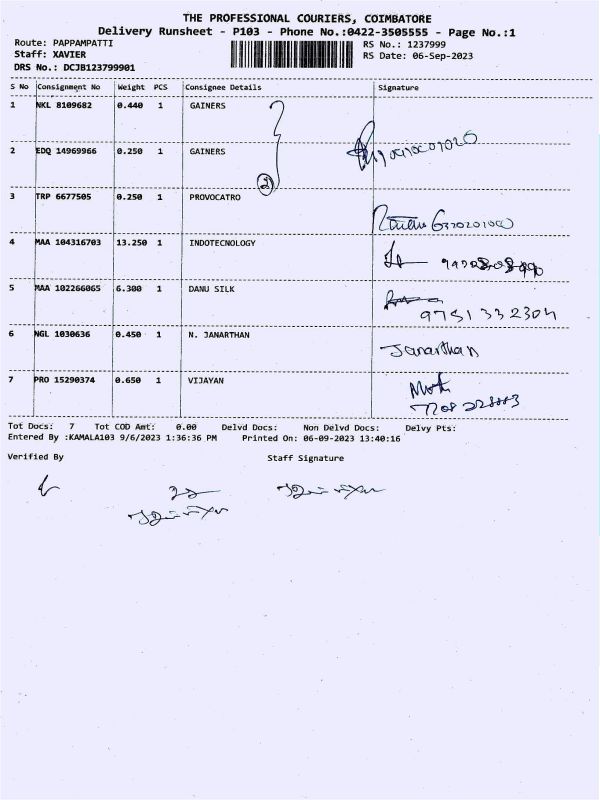 THE PROFESSIONAL COURIERS, COIMBATORE
Delivery Runsheet - P103 - Phone No.:0422-3505555 - Page No.:1
Route: PAPPAMPATTI
Staff: XAVIER
DRS No.: DCJB123799901
RS No.: 1237999
RS Date: 06-Sep-2023
S No Consignment No Weight PCS Consignee Details Signature
1 NKL 8109682 0.440 1 GAINERS
2 EDQ 14969966 0.250 1 GAINERS
2
3 TRP 6677505 0.250 1 PROVOCATRO
4 MAA 104316703 13.250 1 INDOTECNOLOGY
5 MAA 102266065 6.300 1 DANU SILK
9751332304
6 NGL 1030636 0.450 1 N. JANARTHAN
Janarthan
7 PRO 15290374 0.650 1 VIJAYAN
Tot Docs: 7 Tot COD Amt: 0.00 Delvd Docs: Non Delvd Docs: Delvy Pts:
Entered By :KAMALA103 9/6/2023 1:36:36 PM Printed On: 06-09-2023 13:40:16
Verified By Staff Signature